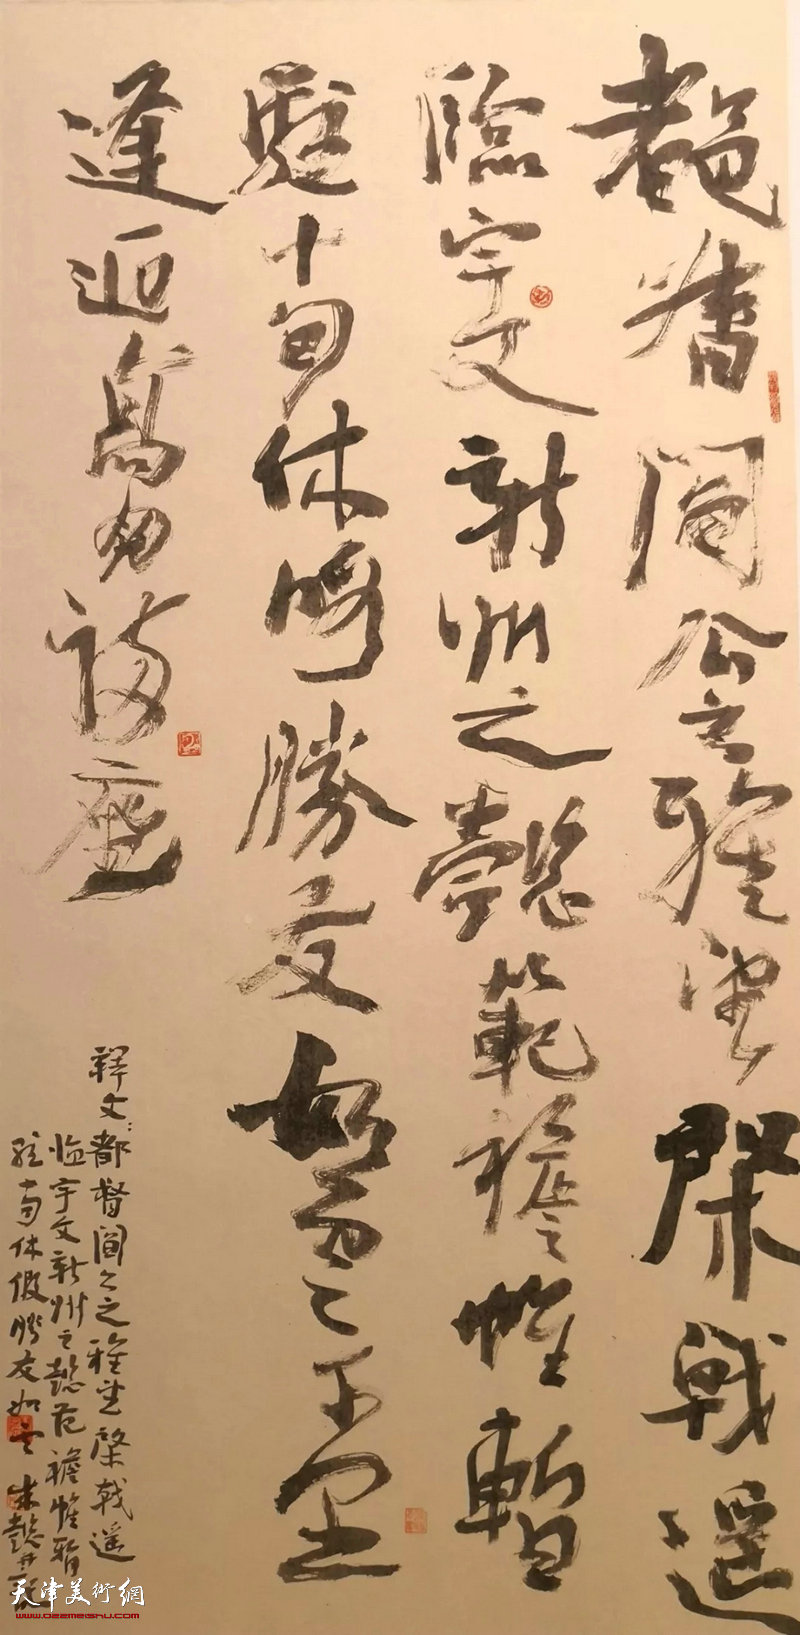 都督閻公之雅望棨戟遥
臨宇文新州之懿範襜帷暫
駐十旬休暇勝友如雲千里
逢迎高朋满座
释文：都督阎公之雅望棨戟遥
临宇文新州之懿范襜帷暂
驻十旬休假胜友如云
天津美術網
www.022meishu.com